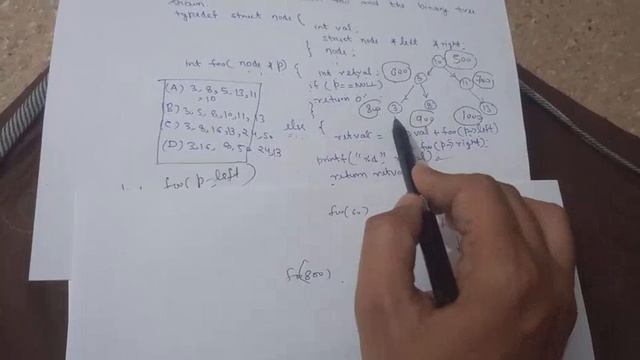 and the binary tree
shown.
typedef struct node {
int val;
struct node * left * right;
} node;
int foo( node * p) { int retval;
if (p==NULL)
return 0;
}
else {
retval = val + foo(p->left)
foo (p->right).
printf("%d",
return
(A) 3, 8, 5, 13, 11
, 10
(B) 3, 5, 8, 10, 11, 13
(C) 3, 8, 16, 13, 24, 50
(D) 3, 16, 8, 50, 24, 13
10 500
600 5
11 700
800 3 8 13
900 1000
foo( p left)
foo(800)